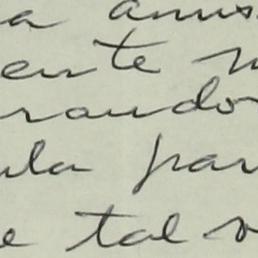 a amis
ente n
rando
ula par
e tal v